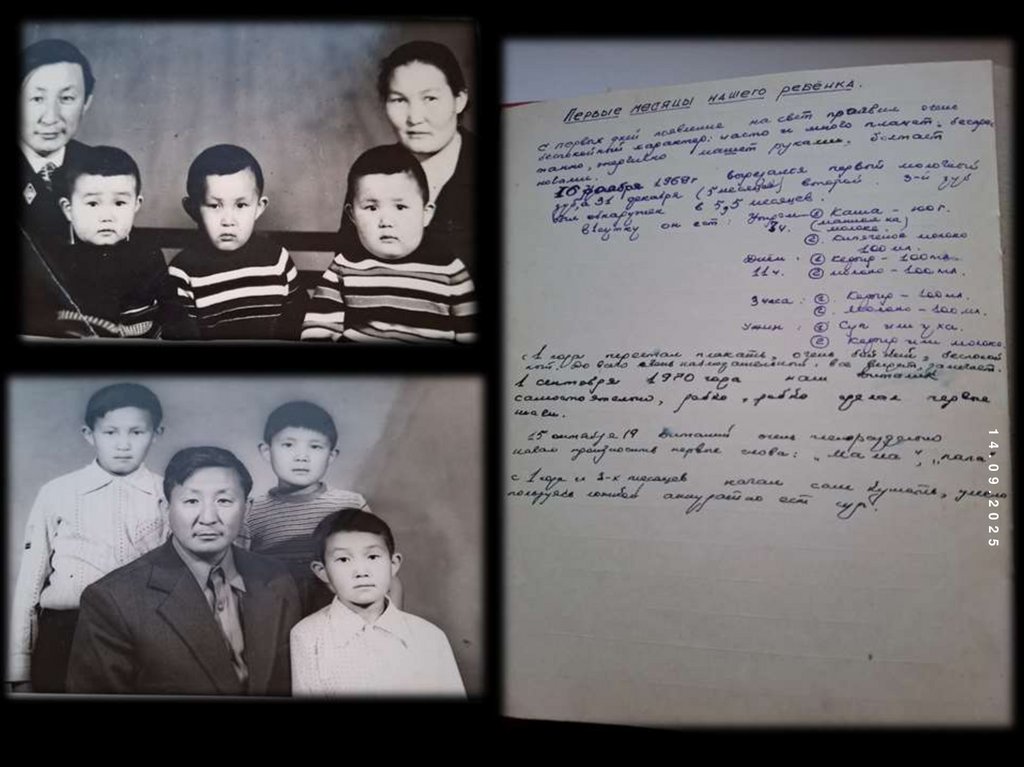 Первые месяцы нашего ребёнка.
С первых дней появление на свет проявил очень
беспокойный характер: часто и много плакет, беспре-
машет руками, болтает
ногами.
16 ноября 1969г вырезался первый молочный
зуб, а 31 декабря (5 месяцев) второй. 3-й зуб
был обнаружен в 5,5 месяцев.
В сутки он ест: Утром ① Каша - 100г.
8ч. (манная на молоке)
② молоко
100 мл.
Днём: ① Кефир - 100мл.
11ч. ② молоко - 100 мл.
3 часа: ① Кефир - 100мл.
② - 100мл.
Ужин: ① Суп или уха.
② Кефир или молоко.
С 1 года перестал плакать, очень бойкий, беспокой-
ный. До чего очень наблюдательный, все видит, замечает.
1 сентября 1970 года наш Виталик
самостоятельно, робко, робко сделал первые
шаги.
15 октября 19 Виталий очень членораздельно
начал произносить первые слова: "мама", "папа"
С 1 года и 3-х месяцев начал сам кушать, умело
пользуясь ложкой аккуратно ест суп.
14.09.2025